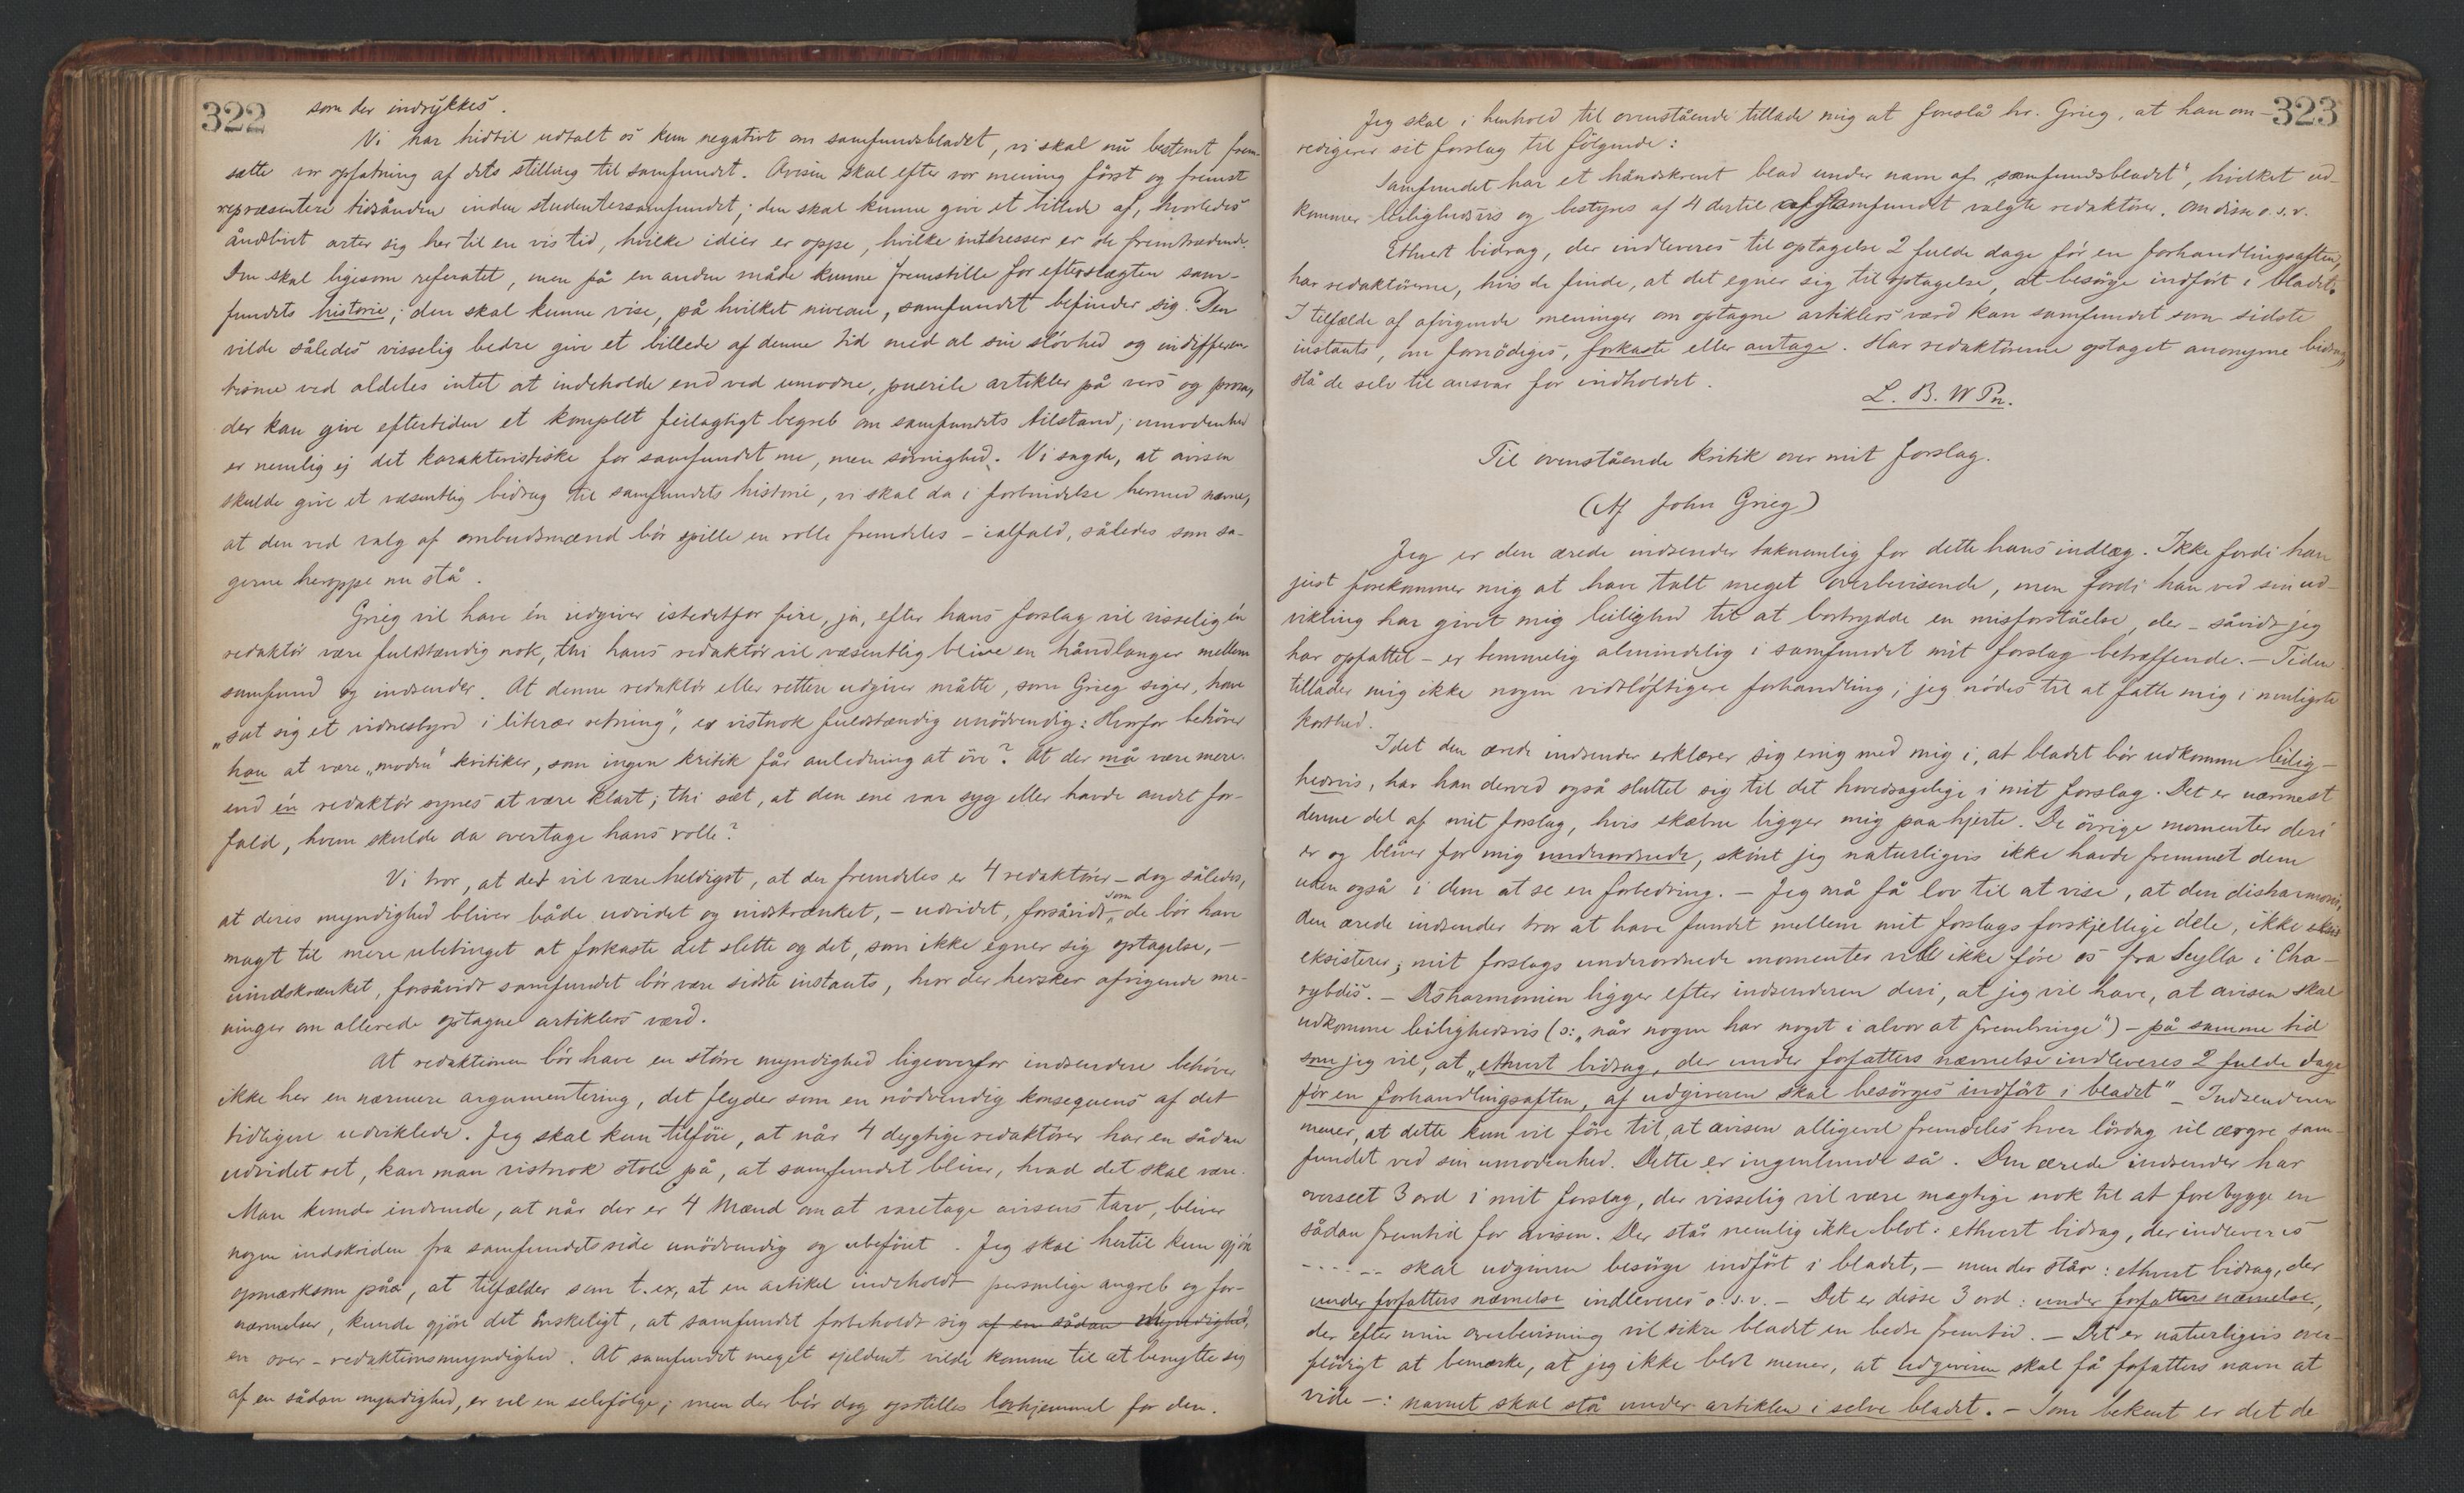 322
som der indrykkes.
Vi har hidtil udtalt os kun negativt om samfundsbladet, vi skal nu bestemt frem-
sætte vor opfatning af dets stilling til samfundet. Avisen skal efter vor mening først og fremst
repræsentere tidsånden inden studentersamfundet; den skal kunne give et billede af, hvorledes
åndslivet arter sig her til en vis tid, hvilke idéer er oppe, hvilke intèresser er de fremtrædende.
Den skal ligesom referatet, men på en anden måde kunne fremstille for efterslægten sam-
fundets historie; den skal kunne vise, på hvilket niveau, samfundet befinder sig. Den
vilde således visselig bedre give et billede af denne tid med al sin sløvhed og indifferen-
tisme ved aldeles intet at indeholde end ved umodne, puerile artikler på vers og prosa,
der kan give eftertiden et komplet feilagtigt begreb om samfundets tilstand; umodenhed
er nemlig ej det karakteristiske for samfundet nu, men søvnighed. Vi sagde, at avisen
skulde give et væsentlig bidrag til samfundets historie, vi skal da i forbindelse hermed nævne,
at den ved valg af ombudsmænd bør spille en rolle fremdeles – ialfald, således som sa-
gerne heroppe nu stå.
Grieg vil have én udgiver istedetfor fire, ja, efter hans forslag vil visselig én
redaktör være fuldstændig nok, thi hans redaktör vil væsentlig blive en håndlanger mellem
samfund og indsender. At denne redaktör eller rettere udgiver måtte, som Grieg siger, have
„sat sig et vidnesbyrd i literær retning”, er vistnok fuldstændig unödvendig: Hvorfor behöver
han at være „moden” kritiker, som ingen kritik får anledning at öve? At der må være mere
end én redaktör synes at være klart; thi sæt, at den ene var syg eller havde andet for-
fald, hvem skulde da overtage hans rolle?
Vi tror, at det vil være heldigst, at der fremdeles er 4 redaktörer – dog således,
at deres myndighed bliver både udvidet og indskrænket, – udvidet, forsåvidt som de bör have
magt til mere ubetinget at forkaste det slette og det, som ikke egner sig optagelse, –
indskrænket, forsåvidt samfundet bör være sidste instants, hvor der hersker afvigende me-
ninger om allerede optagne artiklers værd.
At redaktionen bör have en större myndighed ligeoverfor indsendere behöver
ikke her en nærmere argumentering, det flyder som en nödvendig konsequens af det
tidligere udviklede. Jeg skal kun tilföie, at når 4 dygtige redaktörer har en sådan
udvidet ret, kan man vistnok stole på, at samfundet bliver, hvad det skal være.
Man kunde indvende, at når der er 4 Mænd om at varetage avisens tarv, bliver
nogen indskriden fra samfundets side unödvendig og ubeföiet. Jeg skal hertil kun gjöre
opmærksom påa, at tilfælder som t. ex, at en artikel indeholdt personlige angreb og for-
nærmelser, kunde gjöre det önskeligt, at samfundet forbeholdt sig af en sådan Myndighed,
en over-redaktionsmyndighed. At samfundet meget sjeldent vilde komme til at benytte sig
af en sådan myndighed, er vel en selvfölge; men der bör dog opstilles lovhjemmel for den.
323
Jeg skal i henhold til ovenstående tillade mig at foreslå hr. Grieg, at han om-
redigerer sit forslag til fölgende:
Samfundet har et håndskrevet blad under navn af „samfundsbladet”, hvilket ud-
kommer leilighedsvis og bestyres af 4 dertil af samfundet valgte redaktörer. Om disse o.s.v.
Ethvert bidrag, der indleveres til optagelse 2 fulde dage för en forhandlingsaften,
har redaktörerne, hvis de finde, at det egner sig til optagelse, at besörge indfört i bladet.
I tilfælde af afvigende meninger om optagne artiklers værd kan samfundet som sidste
instants, om fornödiges, forkaste eller antage. Har redaktörerne optaget anonyme bidrag,
stå de selv til ansvar for indholdet.
L. B. W Pn.
Til ovenstående kritik over mit forslag.
(Af John Grieg)
Jeg er den ærede indsender taknemlig for dette hans indlæg. Ikke fordi han
just forekommer mig at have talt meget overbevisende, men fordi han ved sin ud-
vikling har givet mig leilighed til at bortrydde en misforståelse, der – såvidt jeg
har opfattet – er temmelig almindelig i samfundet mit forslag betræffende. – Tiden
tillader mig ikke nogen vidtlöftigere forhandling; jeg nödes til at fatte mig i muligste
korthed.
Idet den ærede indsender erklærer sig enig med mig i, at bladet bör udkomme leilig-
hedsvis, har han derved også sluttet sig til det hovedsagelige i mit forslag. Det er nærmest
denne del af mit forslag, hvis skæbne ligger mig paa hjerte. De övrige momenter deri
er og bliver for mig underordnede, skönt jeg naturligvis ikke havde fremmet dem
uden også i dem at se en forbedring. – Jeg må få lov til at vise, at den disharmoni,
den ærede indsender tror at have fundet mellem mit forslags forskjellige dele, ikke
eksisterer; mit forslags underordnede momenter vil ikke före os fra Scylla i Cha-
rybdis. – Disharmonien ligger efter indsenderen deri, at jeg vil have, at avisen skal
udkomme leilighedsvis (ɔ: „når nogen har noget i alvor at frembringe”) – på samme tid
som jeg vil, at „ethvert bidrag, der under forfatters nævnelse indleveres 2 fulde dage
för en forhandlingsaften, af udgiveren skal besörges indfört i bladet” – Indsenderen
mener, at dette kun vil före til, at avisen alligevel fremdeles hver lördag vil ærgre sam-
fundet ved sin umodenhed. Dette er ingenlunde så. Den ærede indsender har
overseet 3 ord i mit forslag, der visselig vil være mægtige nok til at forebygge en
sådan fremtid for avisen. Der står nemlig ikke blot: ethvert bidrag, der indleveres
- - - - - skal udgiveren besörge indfört i bladet, – men der står: ethvert bidrag, der
under forfatters nævnelse indleveres o.s.v. – Det er disse 3 ord: under forfatters nævnelse,
der efter min overbevisning vil sikre bladet en bedre fremtid. – Det er naturligvis over-
flödigt at bemærke, at jeg ikke blot mener, at udgiveren skal få forfatters navn at
vide –: navnet skal stå under artiklen i selve bladet. – Som bekent er det de